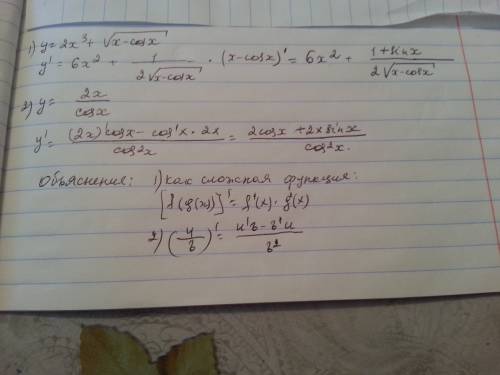 1) y = 2x³ + √(x-cosx)
y' = 6x² + 1/(2√(x-cosx)) · (x-cosx)' = 6x² + (1+sinx)/(2√(x-cosx))
2) y = 2x/cosx
y' = ((2x)'cosx - cos'x · 2x)/cos²x = (2cosx + 2x sinx)/cos²x.
Объяснения: 1) как сложная функция:
[f(g(x))]' = f'(x) · g'(x)
2) (u/v)' = (u'v - v'u)/v²